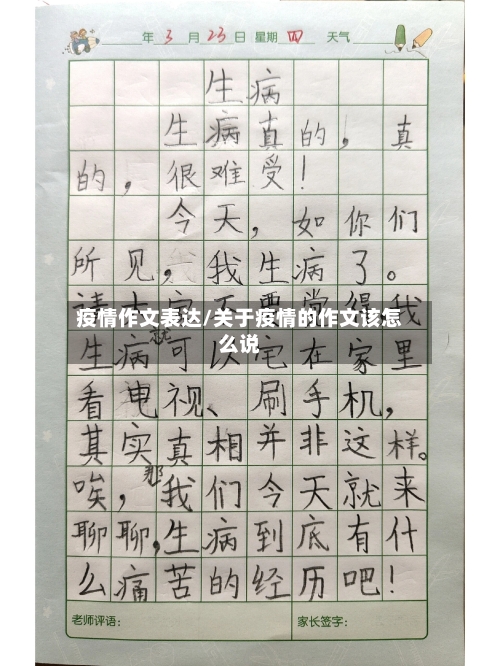 年 3 月 23 日 星期 四 天气
生病
生病真的，真
的，很难受！
今天，如你们
所见，我生病了。
疫情作文表达/关于疫情的作文该怎
么说
生病就可以宅在家里
看电视、刷手机，
其实真相并非这样。
唉，那我们今天就来
聊聊，生病到底有什
么痛苦的经历吧！
老师评语： 家长签字：